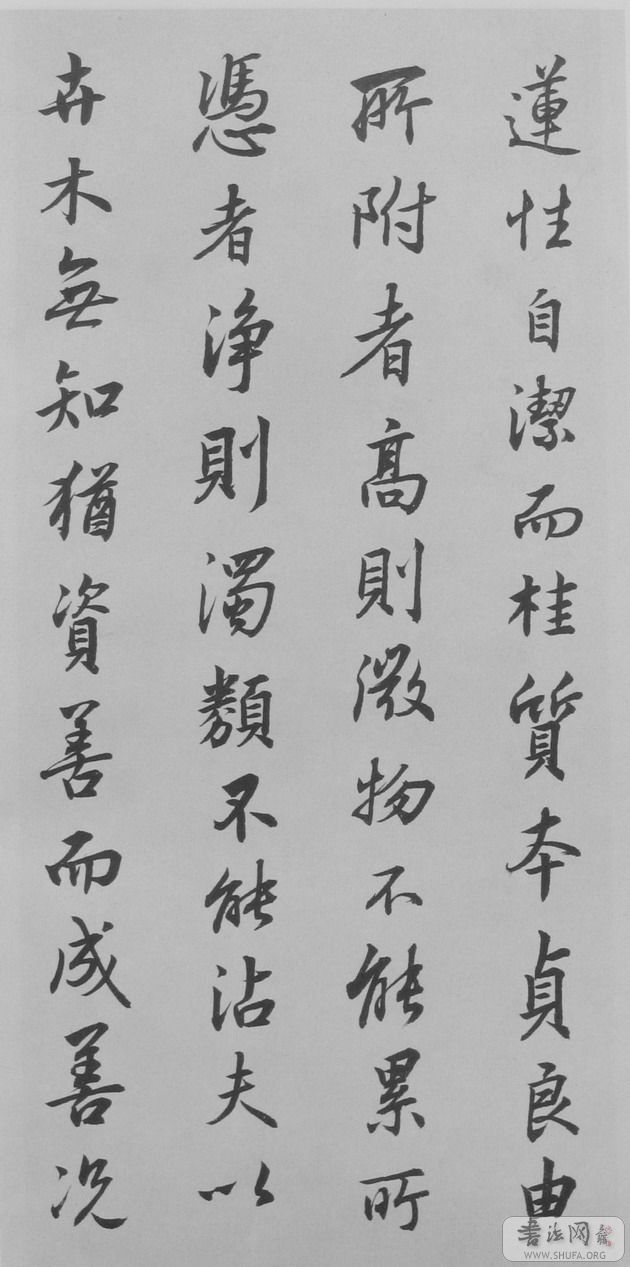 蓮性自潔而桂質本貞良由
所附者高則微物不能累所
憑者浄則濁類不能沾夫以
卉木無知猶資善而成善況
書法网
WWW.SHUFA.ORG